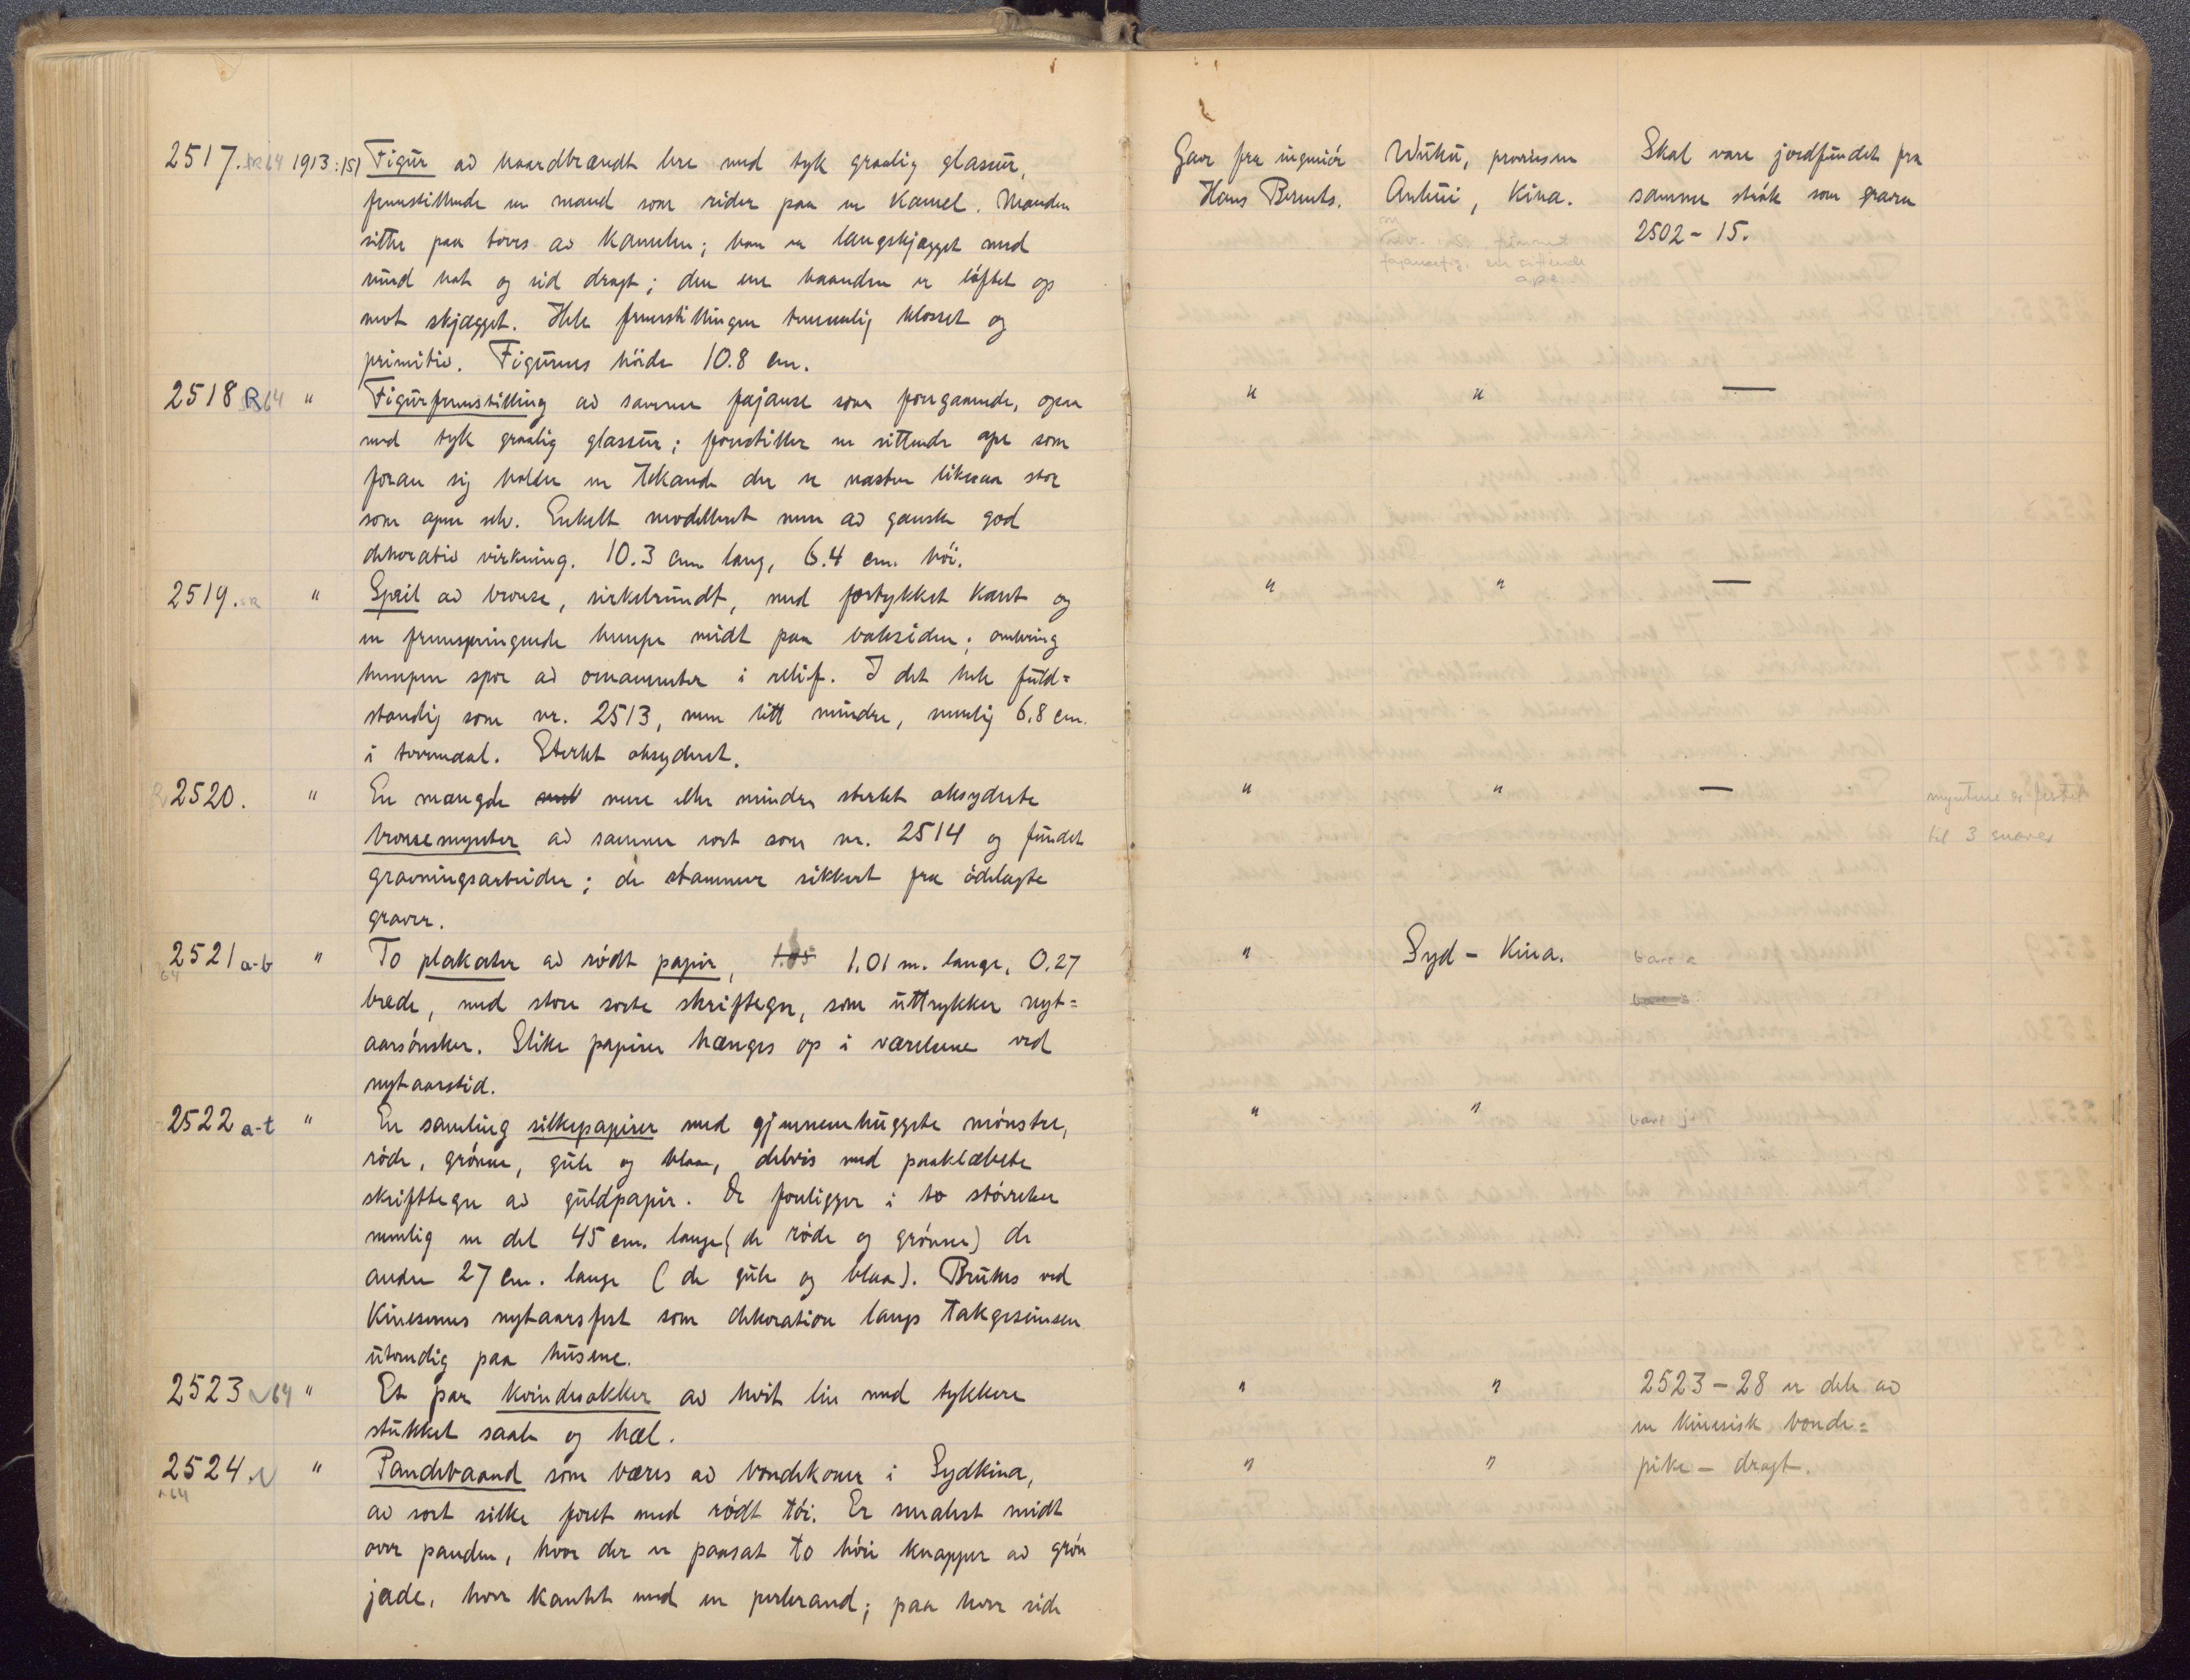 2517. R64 1913:151 Figur av haardbrændt lere med tyk graalig glassur,
fremstillende en mand som rider paa en kamel. Manden
sitter paa tvers av kamelen; han er langskjægget med
rund hat og sid dragt; den ene haanden er løftet op
mot skjægget. Hele fremstillingen temmelig klosset og
primitiv. Figurens høide 10.8 cm.
2518 R64 " Figurfremstilling av samme fajanse som foregaaende, ogsaa
med tyk graalig glassur; forestiller en sittende ape som
foran sig holder en tekande der er næsten likesaa stor
som apen selv. Enkelt modellert men av ganske god
dekorativ virkning. 10.3 cm lang, 6.4 cm. høi.
2519. " Speil av bronse, sirkelrundt, med fortykket kant og
en fremspringende hempe midt paa baksiden; omkring
hempen spor av ornamenter i relief. I det hele fuld=
stændig som nr. 2513, men litt mindre, nemlig 6.8 cm.
i tvermaal. Sterkt oksyderet.
R 2520. " En mængde mere eller mindre sterkt oksyderte
bronsemynter av samme sort som nr. 2514 og fundet
gravningsarbeider; de stammer sikkert fra ødelagte
graver.
2521 a-b " To plakater av rødt papir, 1.05 1.01 m. lange, 0.27
64
brede, med store sorte skrifttegn, som uttrykker nyt=
aarsønsker. Slike papirer hænges op i værelsene ved
nytaarstid.
2522 a-t " En samling silkepapirer med gjennemhuggete mønstre,
røde, grønne, gule og blaa, delvis med paaklæbete
skrifttegn av guldpapir. De foreligger i to størrelser
nemlig en del 45 cm. lange (de røde og grønne) de
andre 27 cm. lange (de gule og blaa). Brukes ved
Kinesernes nytaarsfest som dekoration langs takgesimsen
utvendig paa husene.
2523 64 " Et par kvindesokker av hvit lin med tykkere
stukket saale og hæl.
2524 " Pandebaand som bæres av bondekoner i Sydkina,
64
av sort silke foret med rødt tøi. Er smalest midt
over panden, hvor der er paasat to høie knapper av grøn
jade, hver kantet med en perlerand; paa hver side
Gave fra ingeniør
Hans Bernts.
Wuhu, provinsen
Anhui, Kina.
fajansefig. en sittende
ape
Skal være jordfundet fra
samme strøk som graven
2502-15.
" " —
" " —
" " —
myntene er festet
til 3 snorer
" Syd-Kina. bare a
" " bare j
" " 2523-28 er dele av
en kinesisk bonde=
" " pike-dragt.